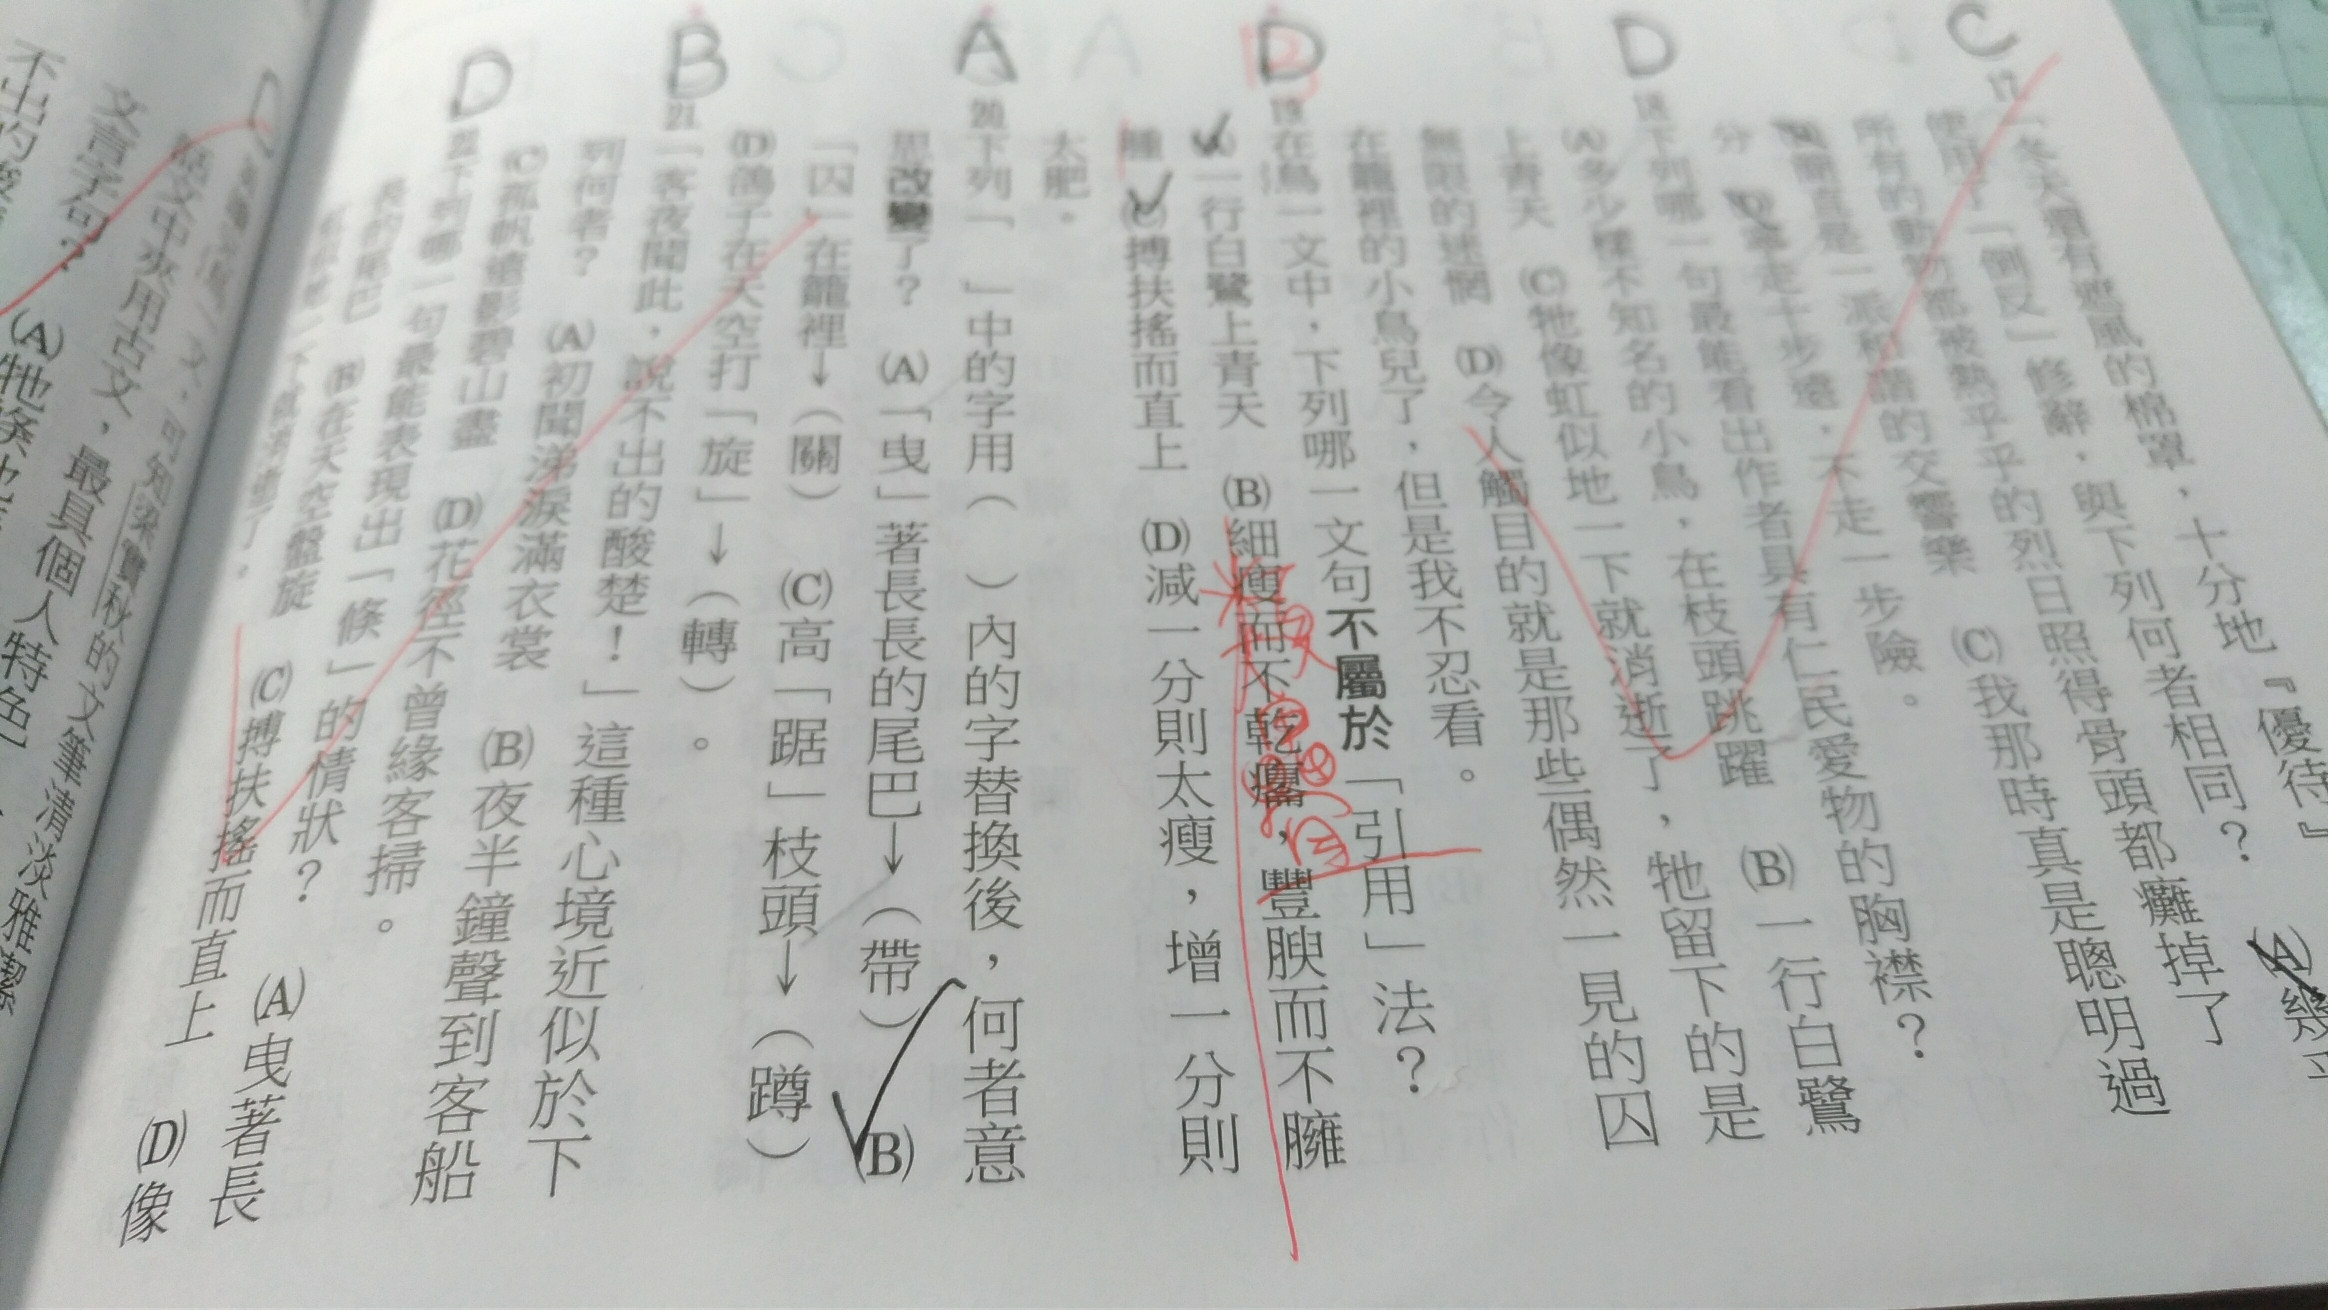 C
17「冬天還有擋風的棉罩，十分地『優待』
使用了「倒反」修辭，與下列何者相同？　(A)幾乎
所有的動物都被熱乎乎的烈日照得骨頭都癱掉了
簡直是一派和諧的交響樂　(C)我那時真是聰明過
分　(D)寧走十步遠，不走一步險。
D
18下列哪一句最能看出作者具有仁民愛物的胸襟？
(A)多少樣不知名的小鳥，在枝頭跳躍　(B)一行白鷺
上青天　(C)牠像虹似地一下就消逝了，牠留下的是
無限的迷惘　(D)令人觸目的就是那些偶然一見的囚
在籠裡的小鳥兒了，但是我不忍看。
D
19在鳥一文中，下列哪一文句不屬於「引用」法？
(A)一行白鷺上青天　(B)細瘦而不乾癟，豐腴而不臃
腫　(C)搏扶搖而直上　(D)減一分則太瘦，增一分則
太肥。
A
20下列「　」中的字用（　）內的字替換後，何者意
思改變了？　(A)「曳」著長長的尾巴→（帶）　(B)
「囚」在籠裡→（關）　(C)高「踞」枝頭→（蹲）
(D)鴿子在天空打「旋」→（轉）。
B
21「客夜聞此，說不出的酸楚！」這種心境近似於下
列何者？　(A)初聞涕淚滿衣裳　(B)夜半鐘聲到客船
(C)孤帆遠影碧山盡　(D)花徑不曾緣客掃。
D
22下列哪一句最能表現出「倏」的情狀？　(A)曳著長
長的尾巴　(B)在天空盤旋　(C)搏扶搖而直上　(D)像
虹似地一下就消逝了。
文，可知梁實秋的文筆清淡雅潔
話文中夾用古文，最具個人特色
文言字句？　(A)牠
不出的酸